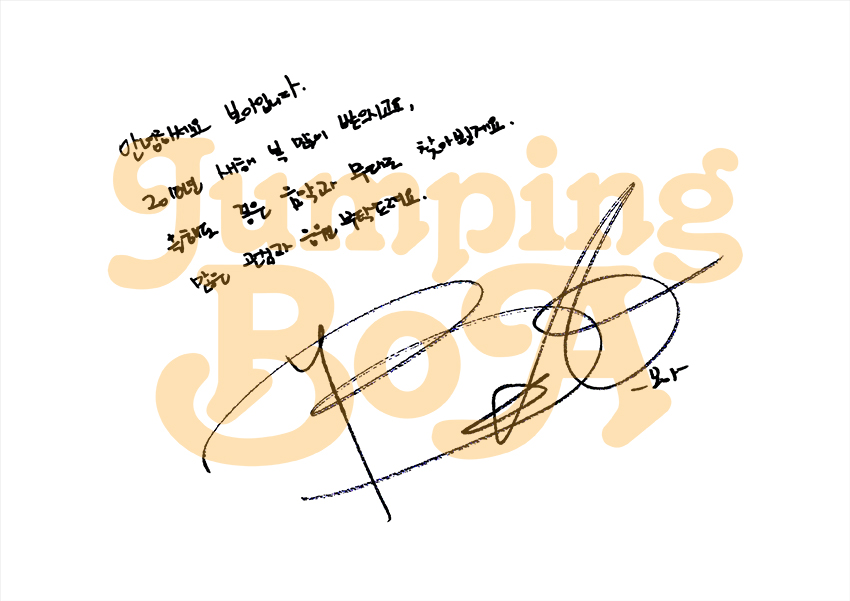 안녕하세요 보아입니다.
2010년 새해 복 많이 받으시고요,
좋은 음악과 무대로 찾아뵐게요.
많은 관심과 응원 부탁드려요.
Jumping
BoA
-보아-